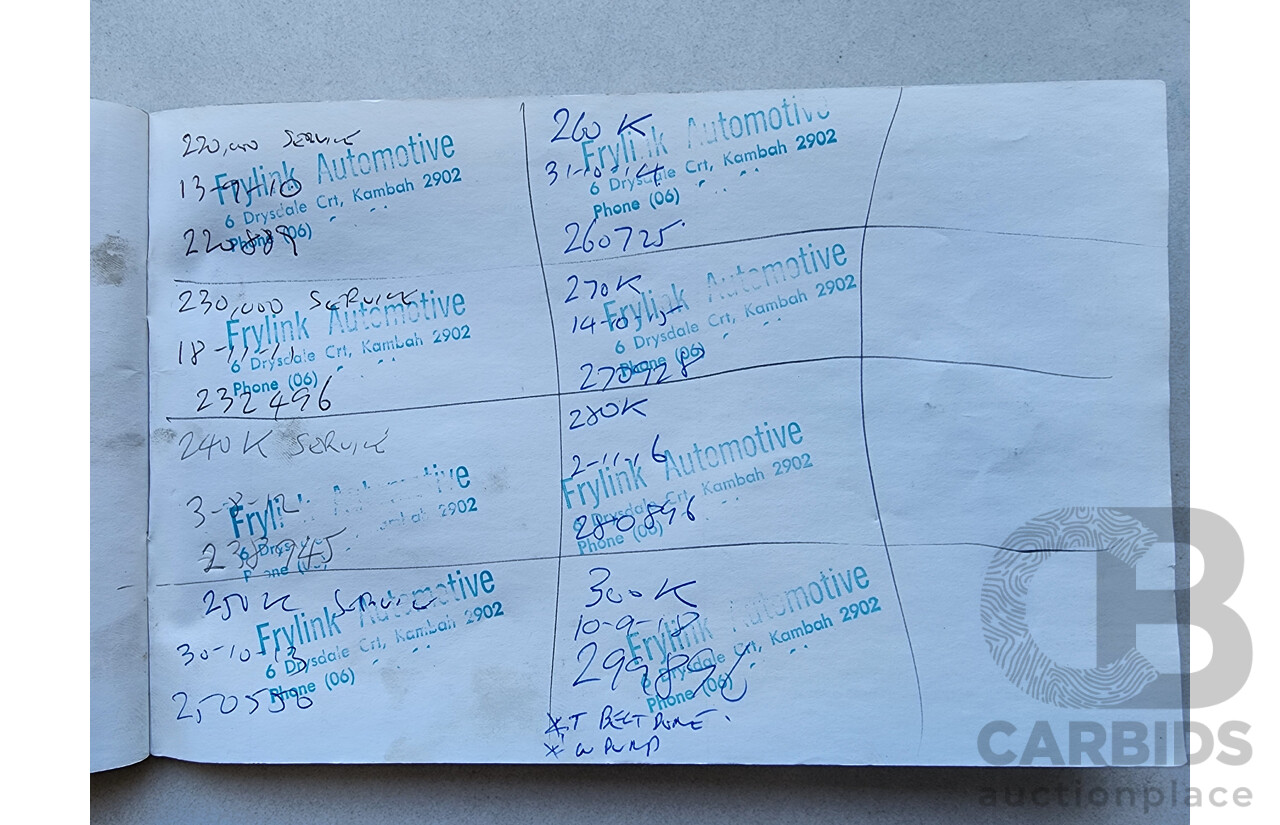 220,000 SERVICE
Frylink Automotive
13-9-10
6 Drysdale Crt, Kambah 2902
Phone (06)
220889
230,000 SERVICE
Frylink Automotive
18-11-11
6 Drysdale Crt, Kambah 2902
Phone (06)
232496
240K SERVICE
3-8-12
2902
238945
250K SERVICE
Frylink Automotive
30-10-13
6 Drysdale Crt, Kambah 2902
Phone (06)
250556
260K
Frylink Automotive
31-10-14
6 Drysdale Crt, Kambah 2902
Phone (06)
260725
270K
Frylink Automotive
6 Drysdale Crt, Kambah 2902
Phone (06)
270928
280K
2-11-16
Frylink Automotive
6 Drysdale Crt, Kambah 2902
280896
Phone (06)
300K
10-9-18
Frylink Automotive
6 Drysdale Crt, Kambah 2902
299896
Phone (06)
* T BELT DONE.
* W PUMP
CB
CARBIDS
auctionplace